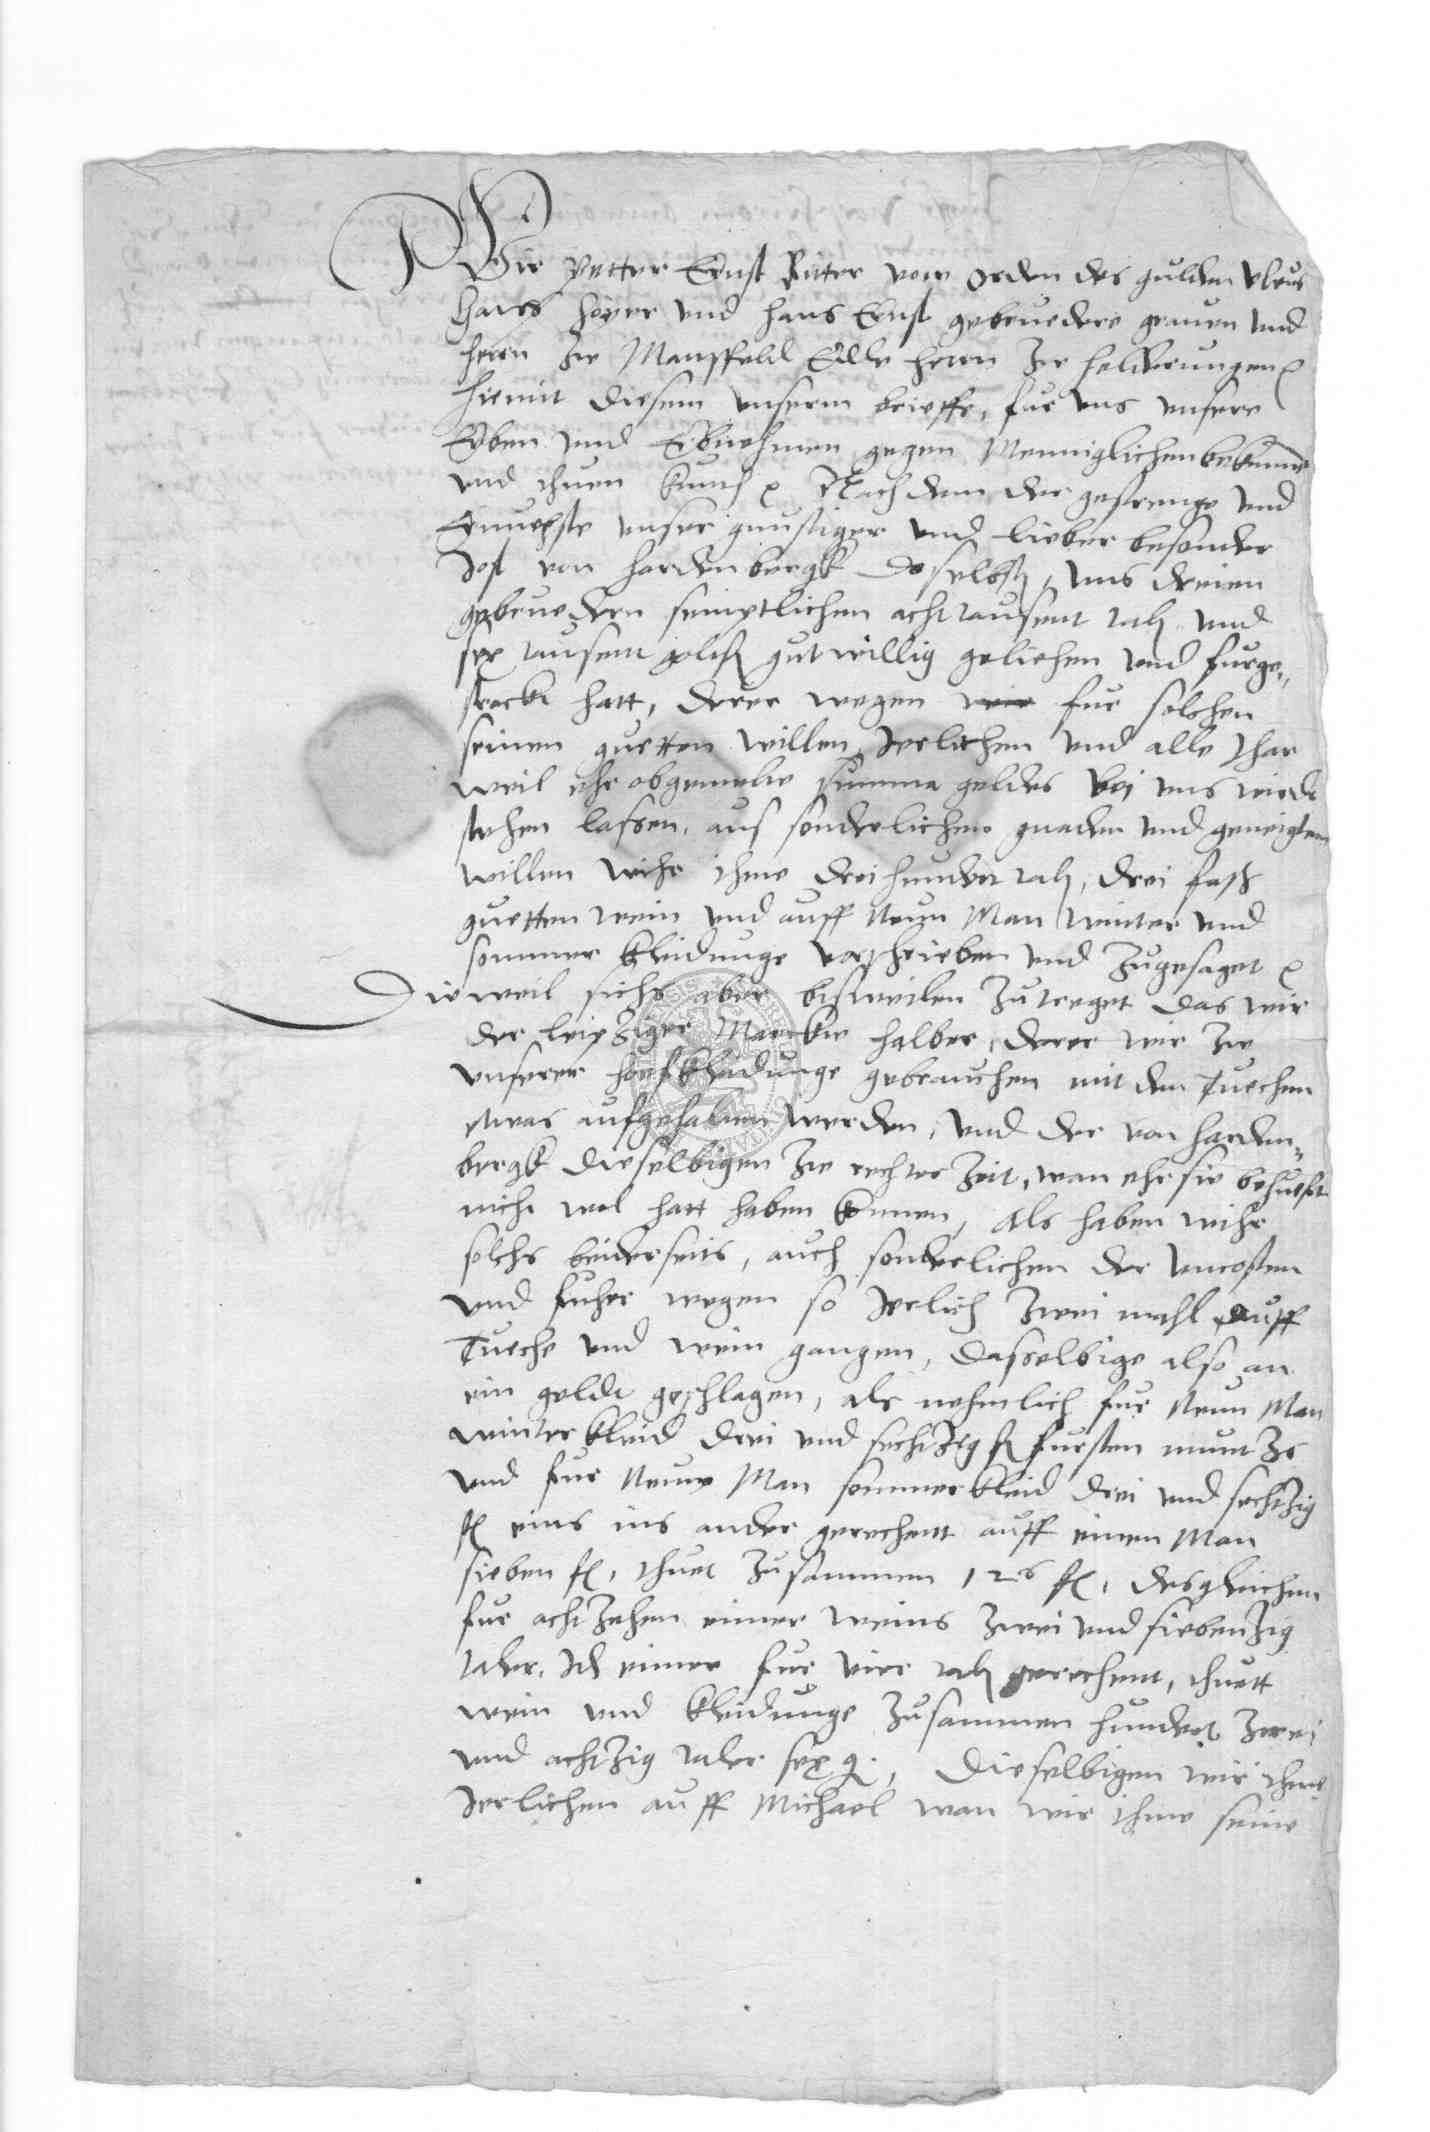 Wir Petter Ernst Ritter vom Orden des gulden vlens
Hans Hoyer vnd Hans Ernst gebruedere grauen vnd
herrn zw Mansffeld Edle herrn zw heldrungen
hiemit diesem vnserm brieffe, fur vns vnsere
Erben vnd Erbnehmen gegen Menniglichen bekennen
vnd thuen kunth Nach dem der gestrenge vnd
Ernueste vnser gunstiger vnd lieber besonder
Jost von Hardenbergk doselbst, vns dreien
gebruedern semptlichen acht tausent talr vnd
sex tausent goltfl gutwillig geliehen vnd furge„
streckt hatt, derer wegen wir fur solchen
seinen guetten willen Jerlichen vnd alle Jhar
weil ehr obgemelte summa geldes bej vns wirdt
stehen lassen, aus sonderlichen gnaden vnd geneigtem
willen wihr ihme drei hundert talr, drei fass
guetten wein vnd auff Neun Man winter vnd
sommer kleidunge vorschrieben vnd zugesaget
Die weil sichs aber bisweilen zutreget das wir
der Leipziger Marckte halber, derer wir zw
vnserer hoeffkleidunge gebrauchen mit den Tuechen
etwas aufgehalten werden, vnd der von Harden„
bergk dieselbigen zw rechter zeit, wan ehr sie behuefft
nicht wol hatt haben konnen, Als haben wihr
solchs beiderseits, auch sonderlichen der vncosten
vnd fuhre wegen so Jerlich zwei mahl auff
Tueche vnd wein gangen, dasselbige also an
ein geldt geschlagen, als nehmlich fur Neun Man
winter kleid drei vnd sechtzig fl fursten muntze
vnd fur Neun Man sommer kleid drei vnd sechtzig
fl eins ins ander gerechent auff einen Man
sieben fl, thuet zusammen 126 fl, desgleichen
fur achtzehen eimer weins zwei vnd siebentzig
taler, Jden eimer fur vier talr gerechent, thuett
wein vnd kleidunge zusammen hundert zwei
vnd achtzig taler sex g., Dieselbigen wir ihme
Jerlichen auff Michael wan wir ihme seine